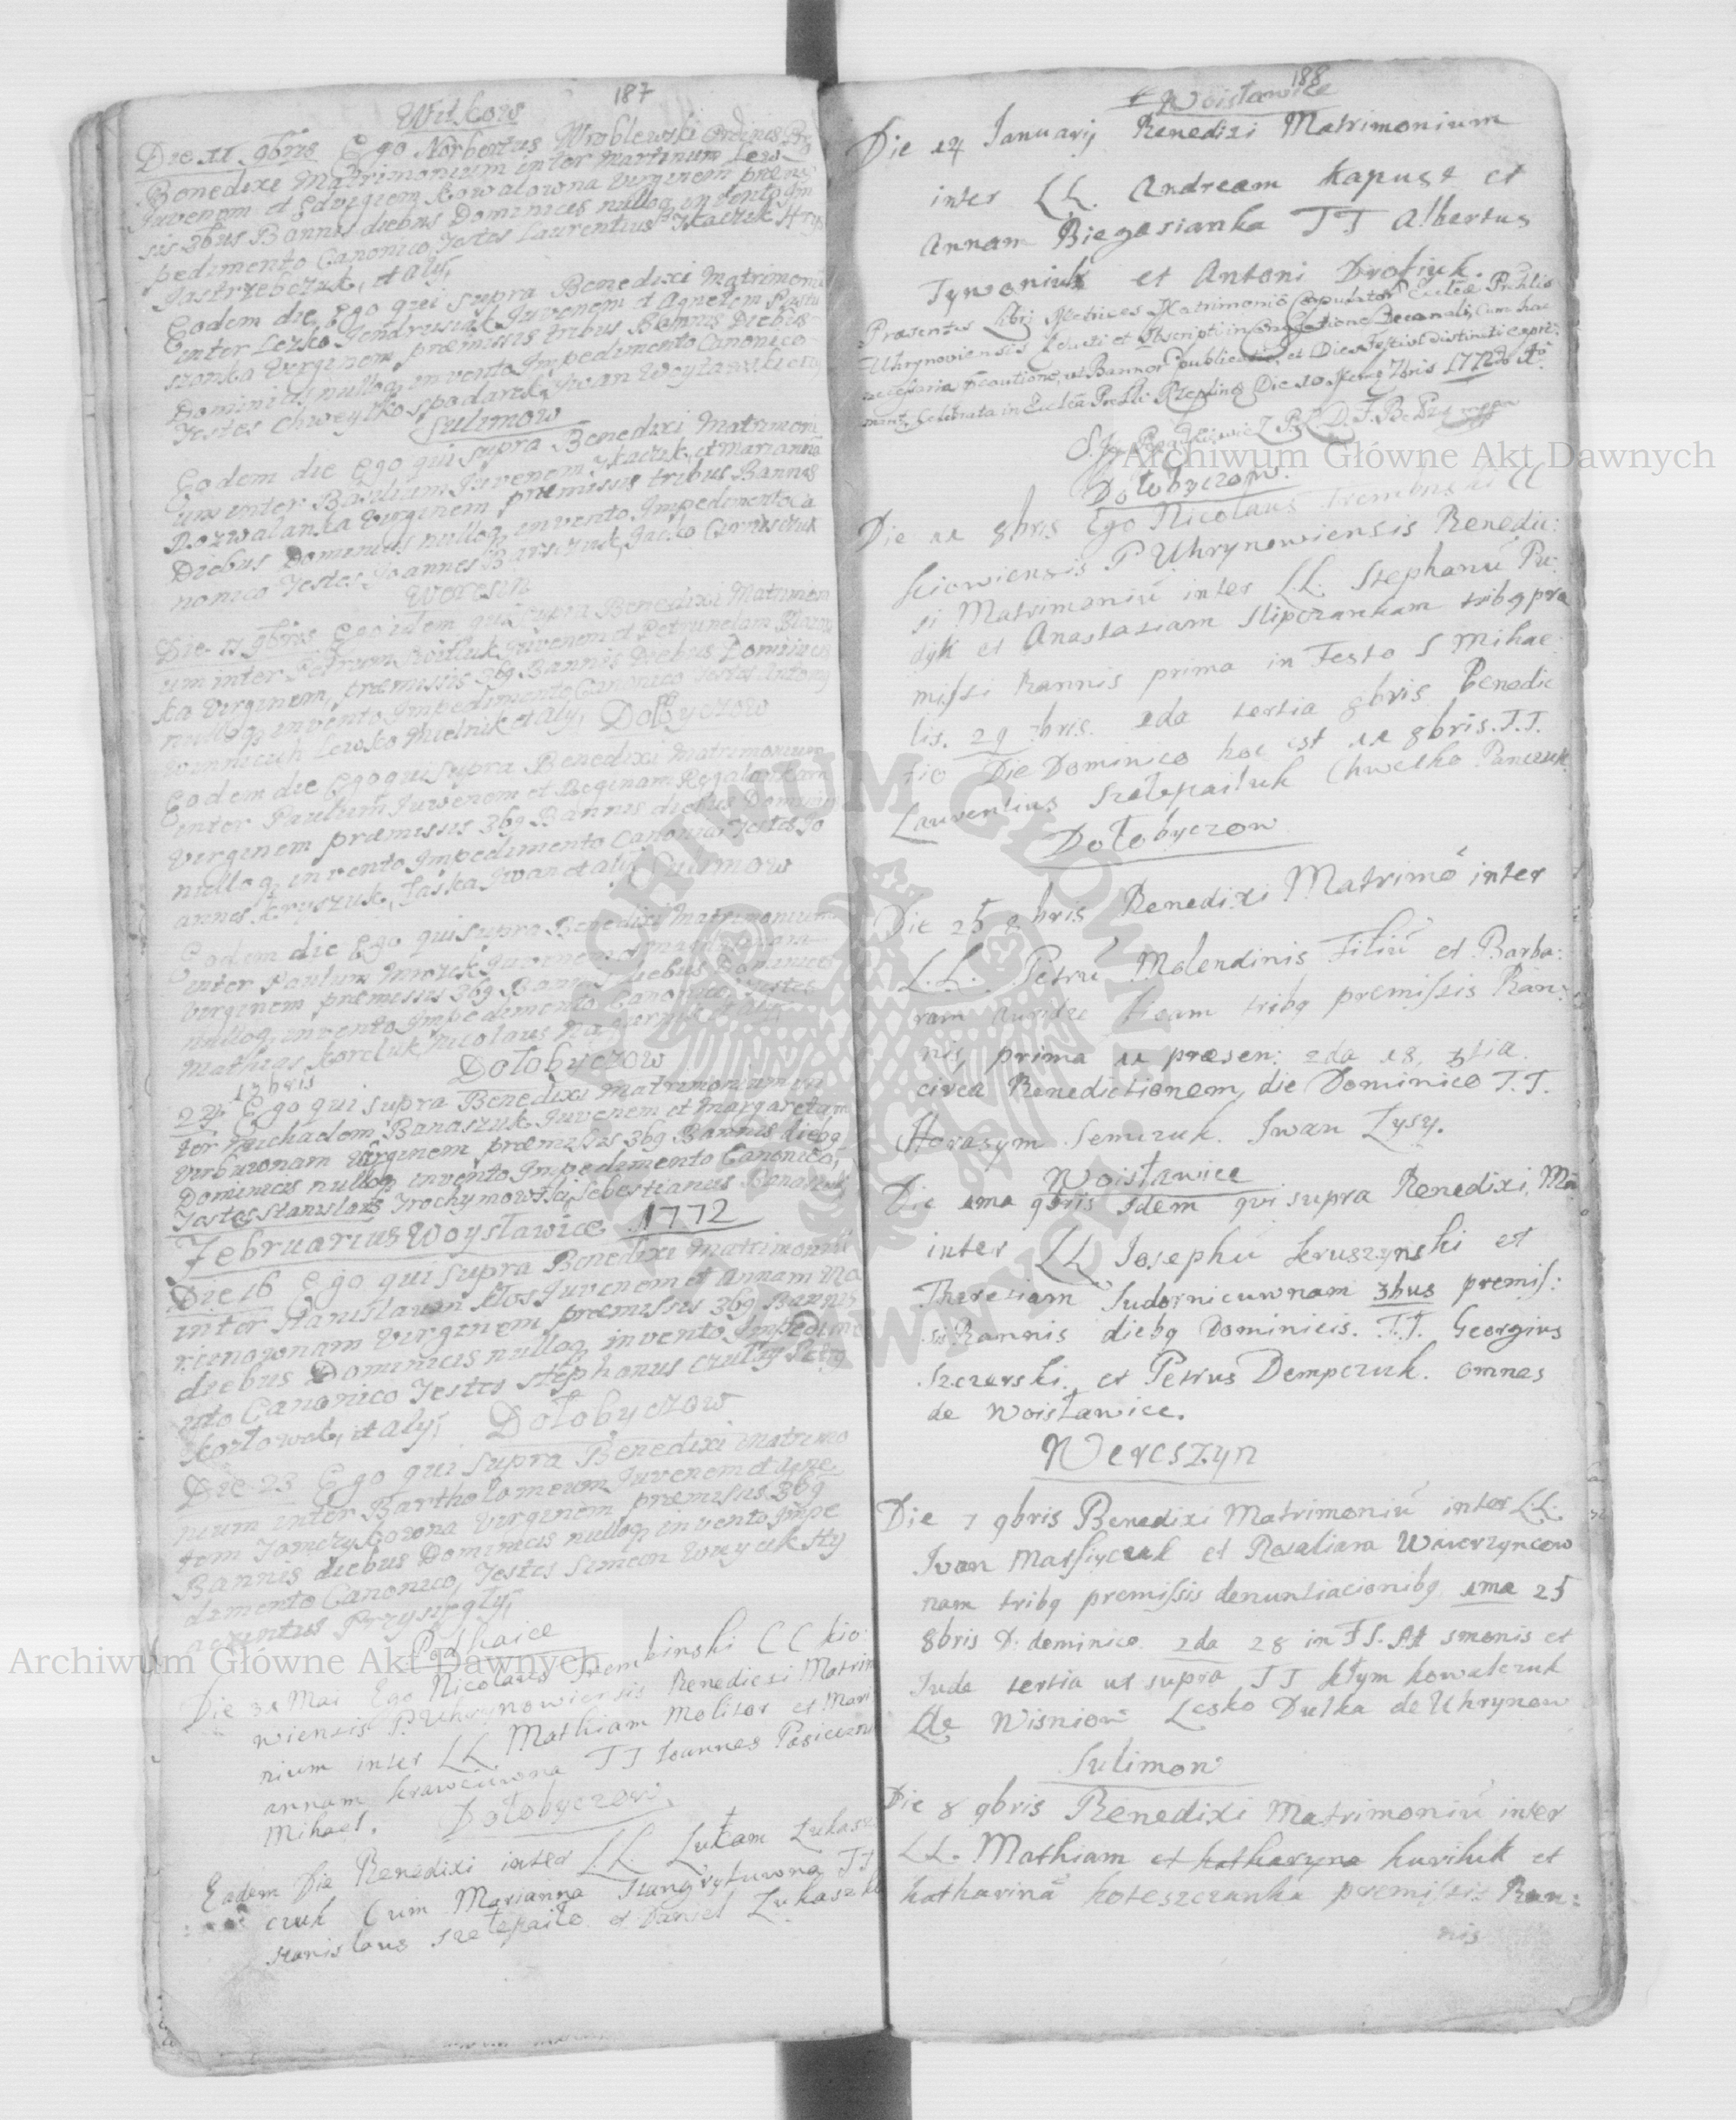 187
Witkow
Die 11 9bris Ego Norbertus Wroblewski Ordinis
Benedixi Matrimonium inter Martinum Lew
Juvenem et Edvigiem Kowalowna Virginem præmis
sis 3bus Bannis diebus Dominicis nulloq invento Im
pedimento Canonico, Testes Laurentius Tkaczuk
Jastrzebczuk, et alij,
Eodem die Ego qui supra Benedixi Matrimoni
inter Leszko Jendrusiak Juvenem et Agnetem
Virginem præmissis tribus Bannis Diebus
Dominicis nulloq invento Impedimento Canonico
Testes Iwan
Sulimow
Eodem die Ego qui supra Benedixi Matrimoni
um inter Basilium Juvenem Tkaczuk, et Marianna
Dozwalanka Virginem præmissis tribus Bannis
Diebus Dominicis nulloq invento Impedimento Ca
nonico Testes Joannes Barszczuk, Jacko
Woresin
Die 11 9bris Ego idem qui supra Benedixi Matrimoni
um inter Petrum Juvenem et Petrunelam
ka Virginem, præmissis 3bq Bannis Diebus Dominicis
nulloq invento Impedimento Canonico Testes Antoni
Lewko Mielnik et alij, Dołobyczow
Eodem die Ego qui supra Benedixi Matrimonium
inter Paulum Juvenem et Reginam Regalankam
Virginem præmissis 3bq Bannis diebus Domini
nulloq invento Impedimento Canonico Testes Jo
annes Hryszuk, Jaśka Iwan et alij Sulimow
Eodem die Ego qui supra Benedixi Matrimonium
inter Paulum Mrozek Juvenem et
Virginem præmissis 3bq Bannis diebus Dominico
nulloq invento Impedimento Canonico, Testes
Mathias Korcluk Nicolaus et alij
Dołobyczow
27 Ego qui supra Benedixi Matrimonium in
ter Michaelem Banaszuk Juvenem et Margaretam
Virginem præmissis 3bq Bannis diebq
Dominicis nulloq invento Impedimento Canonico,
Testes Stanislaus Trochymowski, Sebestianus Banaszuk
Februarius Woysławice 1772
Die 16 Ego qui supra Benedixi Matrimoniu
inter Stanislaum Kłos Juvenem et Annam Ma
Virginem præmissis 3bq Bannis
diebus Dominicis nulloq invento Impedime
nto Canonico Testes Stephanus
Kozłowski, et alij, Dołobyczow
Die 23 Ego qui supra Benedixi Matrimo
nium inter Bartholomeum Juvenem et Agne
tem Jamczykowna Virginem præmissis 3bq
Bannis diebus Dominicis nulloq invento Impe
dimento Canonico, Testes Simeon Hry
Przysięgły,
Podhaice
Die 31 Mai Ego Nicolaus Trembinski C C Kio
wiensis P. Uhrynowiensis Benedicsi Matrim
nium inter LL. Mathiam Molitor et Mari
annam Krawcuwna TT Ioannes Pasiecznik
Mihael. Dołobyczow.
Eadem Die Benedixi inter LL. Lukam Lukasz
czuk Cum Marianna TT
Stanislaus Szełepaiło et Daniel Lukaszko
188
Woisławice
Die 14 Ianuarij Benedixi Matrimonium
inter LL. Andream Kapust et
Annam Biegasianka TT Albertus
Tywoniuk et Antoni Drofiuk.
Præsentes Libri Metrices Matrimonio Copulator Eccłæ Pchlis
Uhrynoviensis et Obscripti in Congregatione Decanali, Cum hac
necessaria cautione, ut Bannor publicatio, et Dies Festivi distincte expri
mant, Celebrata in Eccla Die 10 7bris 1772do Ao
Dołobyczow.
Die 11 8bris Ego Nicolaus Trembinski CC
Kiowiensis P Uhrynowiensis Benedic:
si Matrimoniu inter LL. Stephanu Pu:
dyk et Anastasiam Slipczankam tribq pra
missi Bannis prima in Festo S Mihae
lis. 29 7bris. 2da tertia 8bris Benedic
tio Die Dominico hoc est 11 8bris. T.T.
Laurentius Szełepailuk Chwelko Panczuk
Dołobyczow
Die 25 8bris Benedixi Matrimo inter
L.L. Petru Molendinis Filiu et Barba:
ram tribq premissis Ban:
nis, prima 11 præsen: 2da 18, 3tia.
circa Benedictionem, die Dominico T.T.
Harasym Semczuk. Iwan Łysy.
Woisławice
Die 1ma 9bris Idem qui supra Benedixi Ma
inter LL Iosephu Kruszynski et
Theresiam Sudornicuwnam 3bus premis:
sis Bannis diebq Dominicis. T.T. Georgius
Szczerski. et Petrus Dempczuk. omnes
de Woisławice.
Wereszyn
Die 7 9bris Benedixi Matrimoniu inter L.L.
Ivan Matsiyczuk et Rosaliam Wwierzyncow
nam tribq premissis denuntiacionibq 1ma 25
8bris D. dominico. 2da 28 in FS. At Smonis et
Juda tertia ut supra TT Kłym Kowalczuk
de Wisniow Lesko Dulka de Uhrynow
Sulimow
Die 8 9bris Benedixi Matrimoniu inter
LL. Mathiam et Katharyna Kuriluk et
Katharina Koteszczanka premissis Ban:
nis
Archiwum Główne Akt Dawnych
Archiwum Główne Akt Dawnych
ARCHIWUM GŁÓWNE AKT DAWNYCH